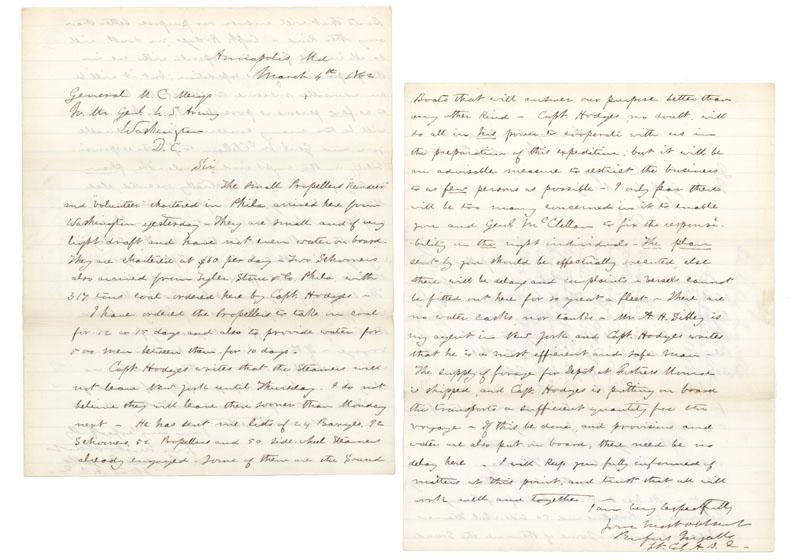 Annapolis Md
March 4th 1862
General M. C. Meigs
Qr Mr Genl U. S. Army
Washington
D. C.
Sir,
The small Propellers "Reindeer"
and Volunteer chartered in Phila arrived here from
Washington yesterday - They are small and of very
light draft and have not even water on board.
They are chartered at $60 per day - Two Schooners
also arrived from Tyler, Stone & Co Phila with
317 tons coal ordered here by Capt. Hodges -
I have ordered the Propellers to take on coal
for 12 to 15 days and also to provide water for
500 men between them for 10 days -
Capt. Hodges writes that the Steamers will
not leave New York until Thursday. I do not
believe they will leave there sooner than Monday
next - He has sent me lists of 24 Barges, 92
Schooners, 52 Propellers and 50 Side-wheel Steamers
already engaged - Some of them are the Sound
Boats that will answer our purpose better than
any other Kind - Capt. Hodges, no doubt, will
do all in his power to cooperate with us in
the preparation of this expedition; but it will be
an advisable measure to restrict the business
to as few persons as possible - I only fear there
will be too many concerned in it to enable
you and Genl. McClellan to fix the responsi-
bility on the right individuals - The plan
sent by you should be effectually executed else
there will be delays and complaints - Vessels cannot
be fitted out here for so great a fleet - There are
no water casks nor tanks - Mr. A. H. is
my agent in New York and Capt. Hodges writes
that he is a most efficient and safe man -
The supply of forage for Depot at Fortress Monroe
is shipped, and Capt. Hodges is putting on board
the transports a sufficient quantity for the
voyage - If this be done, and provisions and
water are also put on board, there need be no
delay here - I will Keep you fully informed of
matters at this point, and trust that all will
work well and together
I am, very respectfully
Your most obt Servt
Rufus Ingalls
Lt Col A. D. C.